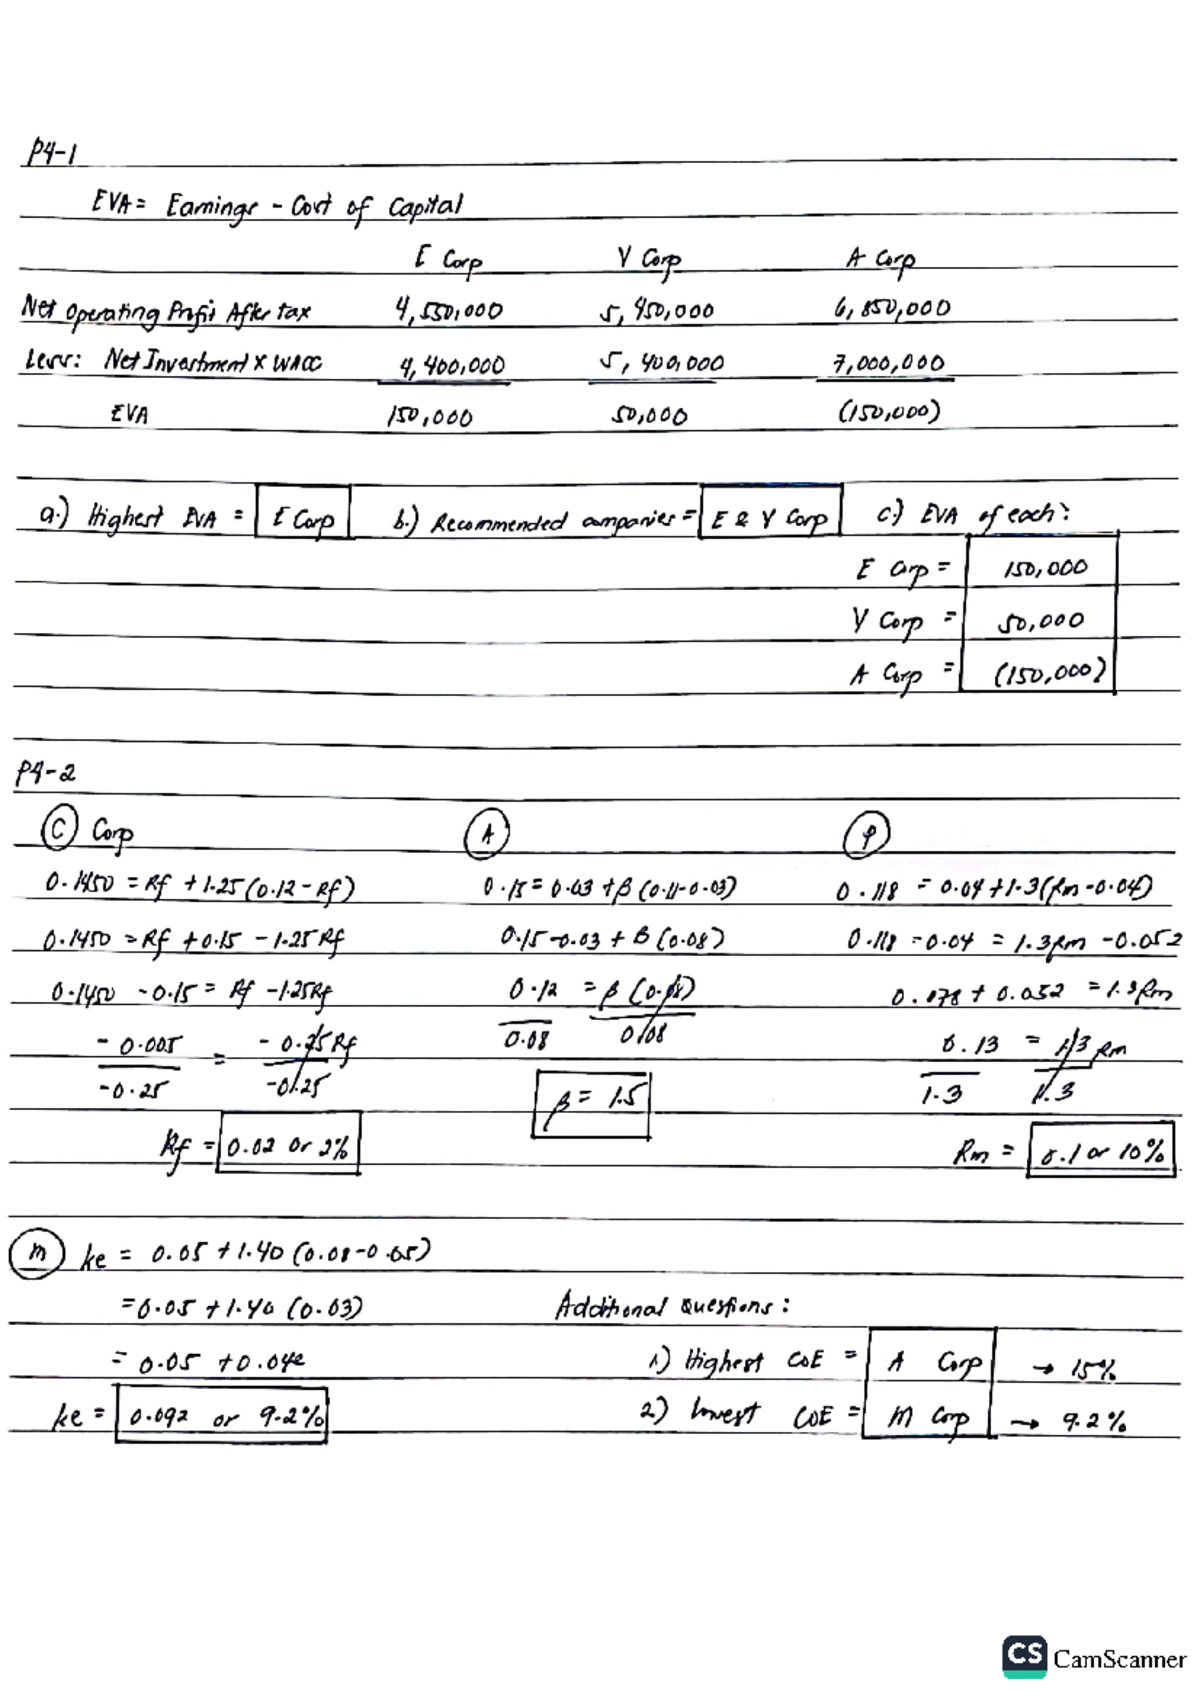 P4-1
EVA = Earnings - Cost of Capital
E Corp V Corp A Corp
Net Operating Profit After tax 4,550,000 5,450,000 6,850,000
Less: Net Investment x WACC 4,400,000 5,400,000 7,000,000
EVA 150,000 50,000 (150,000)
a.) Highest EVA = E Corp b.) Recommended companies = E & V Corp c.) EVA of each:
E Corp = 150,000
V Corp = 50,000
A Corp = (150,000)
P4-2
C Corp A P
0.1450 = Rf + 1.25(0.12 - Rf) 0.15 = 0.03 + β (0.11-0.03) 0.118 = 0.04 + 1.3(Rm - 0.04)
0.1450 = Rf + 0.15 - 1.25 Rf 0.15-0.03 + β (0.08) 0.118 - 0.04 = 1.3Rm - 0.052
0.1450 - 0.15 = Rf - 1.25Rf 0.12 = β (0.08) 0.078 + 0.052 = 1.3Rm
- 0.005 = - 0.25 Rf 0.08 0.08 0.13 = 1.3 Rm
-0.25 -0.25 β = 1.5 1.3 1.3
Rf = 0.02 or 2% Rm = 0.1 or 10%
M ke = 0.05 + 1.40 (0.08-0.05)
= 0.05 + 1.40 (0.03) Additional questions:
= 0.05 + 0.042 1) Highest COE = A Corp → 15%
ke = 0.092 or 9.2% 2) Lowest COE = M Corp → 9.2%
CS CamScanner